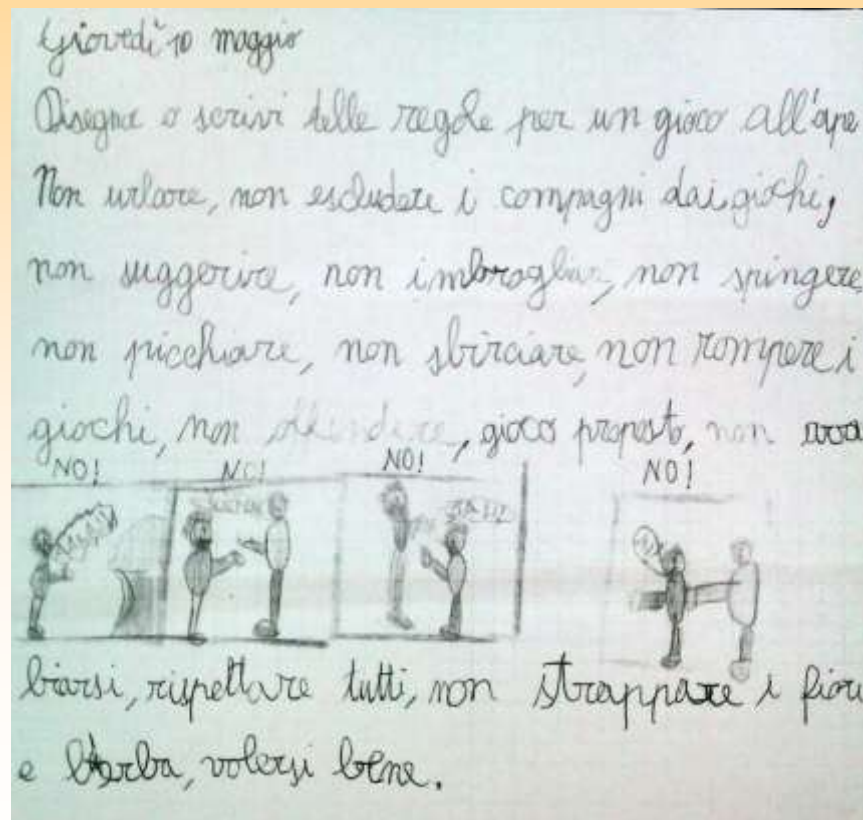 Giovedì 10 maggio
Disegna o scrivi delle regole per un gioco all'ape
Non urlare, non escludere i compagni dai giochi,
non suggerire, non imbrogliare, non spingere
non picchiare, non sbirciare, non rompere i
giochi, non offendere, gioco proposto, non arra
NO! NO! NO! NO!
biarsi, rispettare tutti, non strappare i fiori
e l'erba, volersi bene.